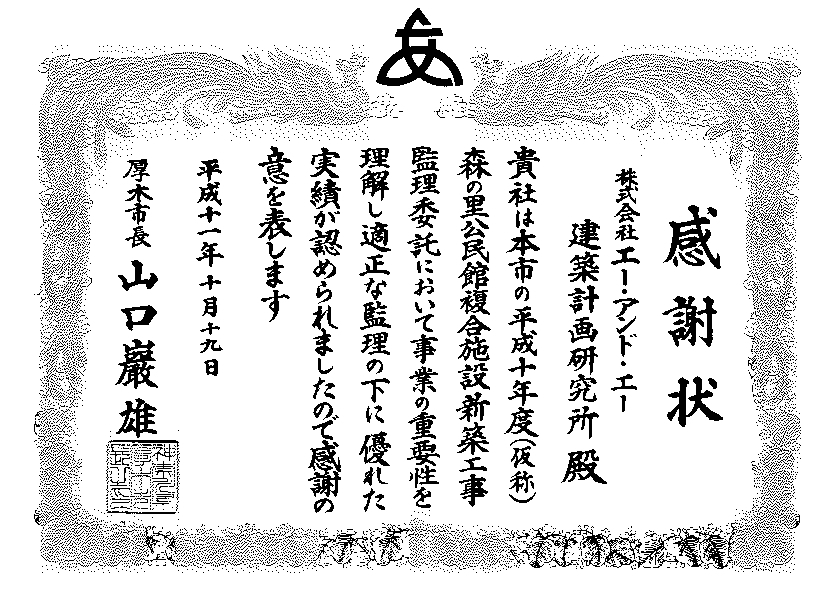 感謝状
株式会社エー・アンド・エー
建築計画研究所 殿
貴社は本市の平成十年度(仮称)
森の里公民館複合施設新築工事
監理委託において事業の重要性を
理解し適正な監理の下に優れた
実績が認められましたので感謝の
意を表します
平成十一年十月十九日
厚木市長 山口巖雄